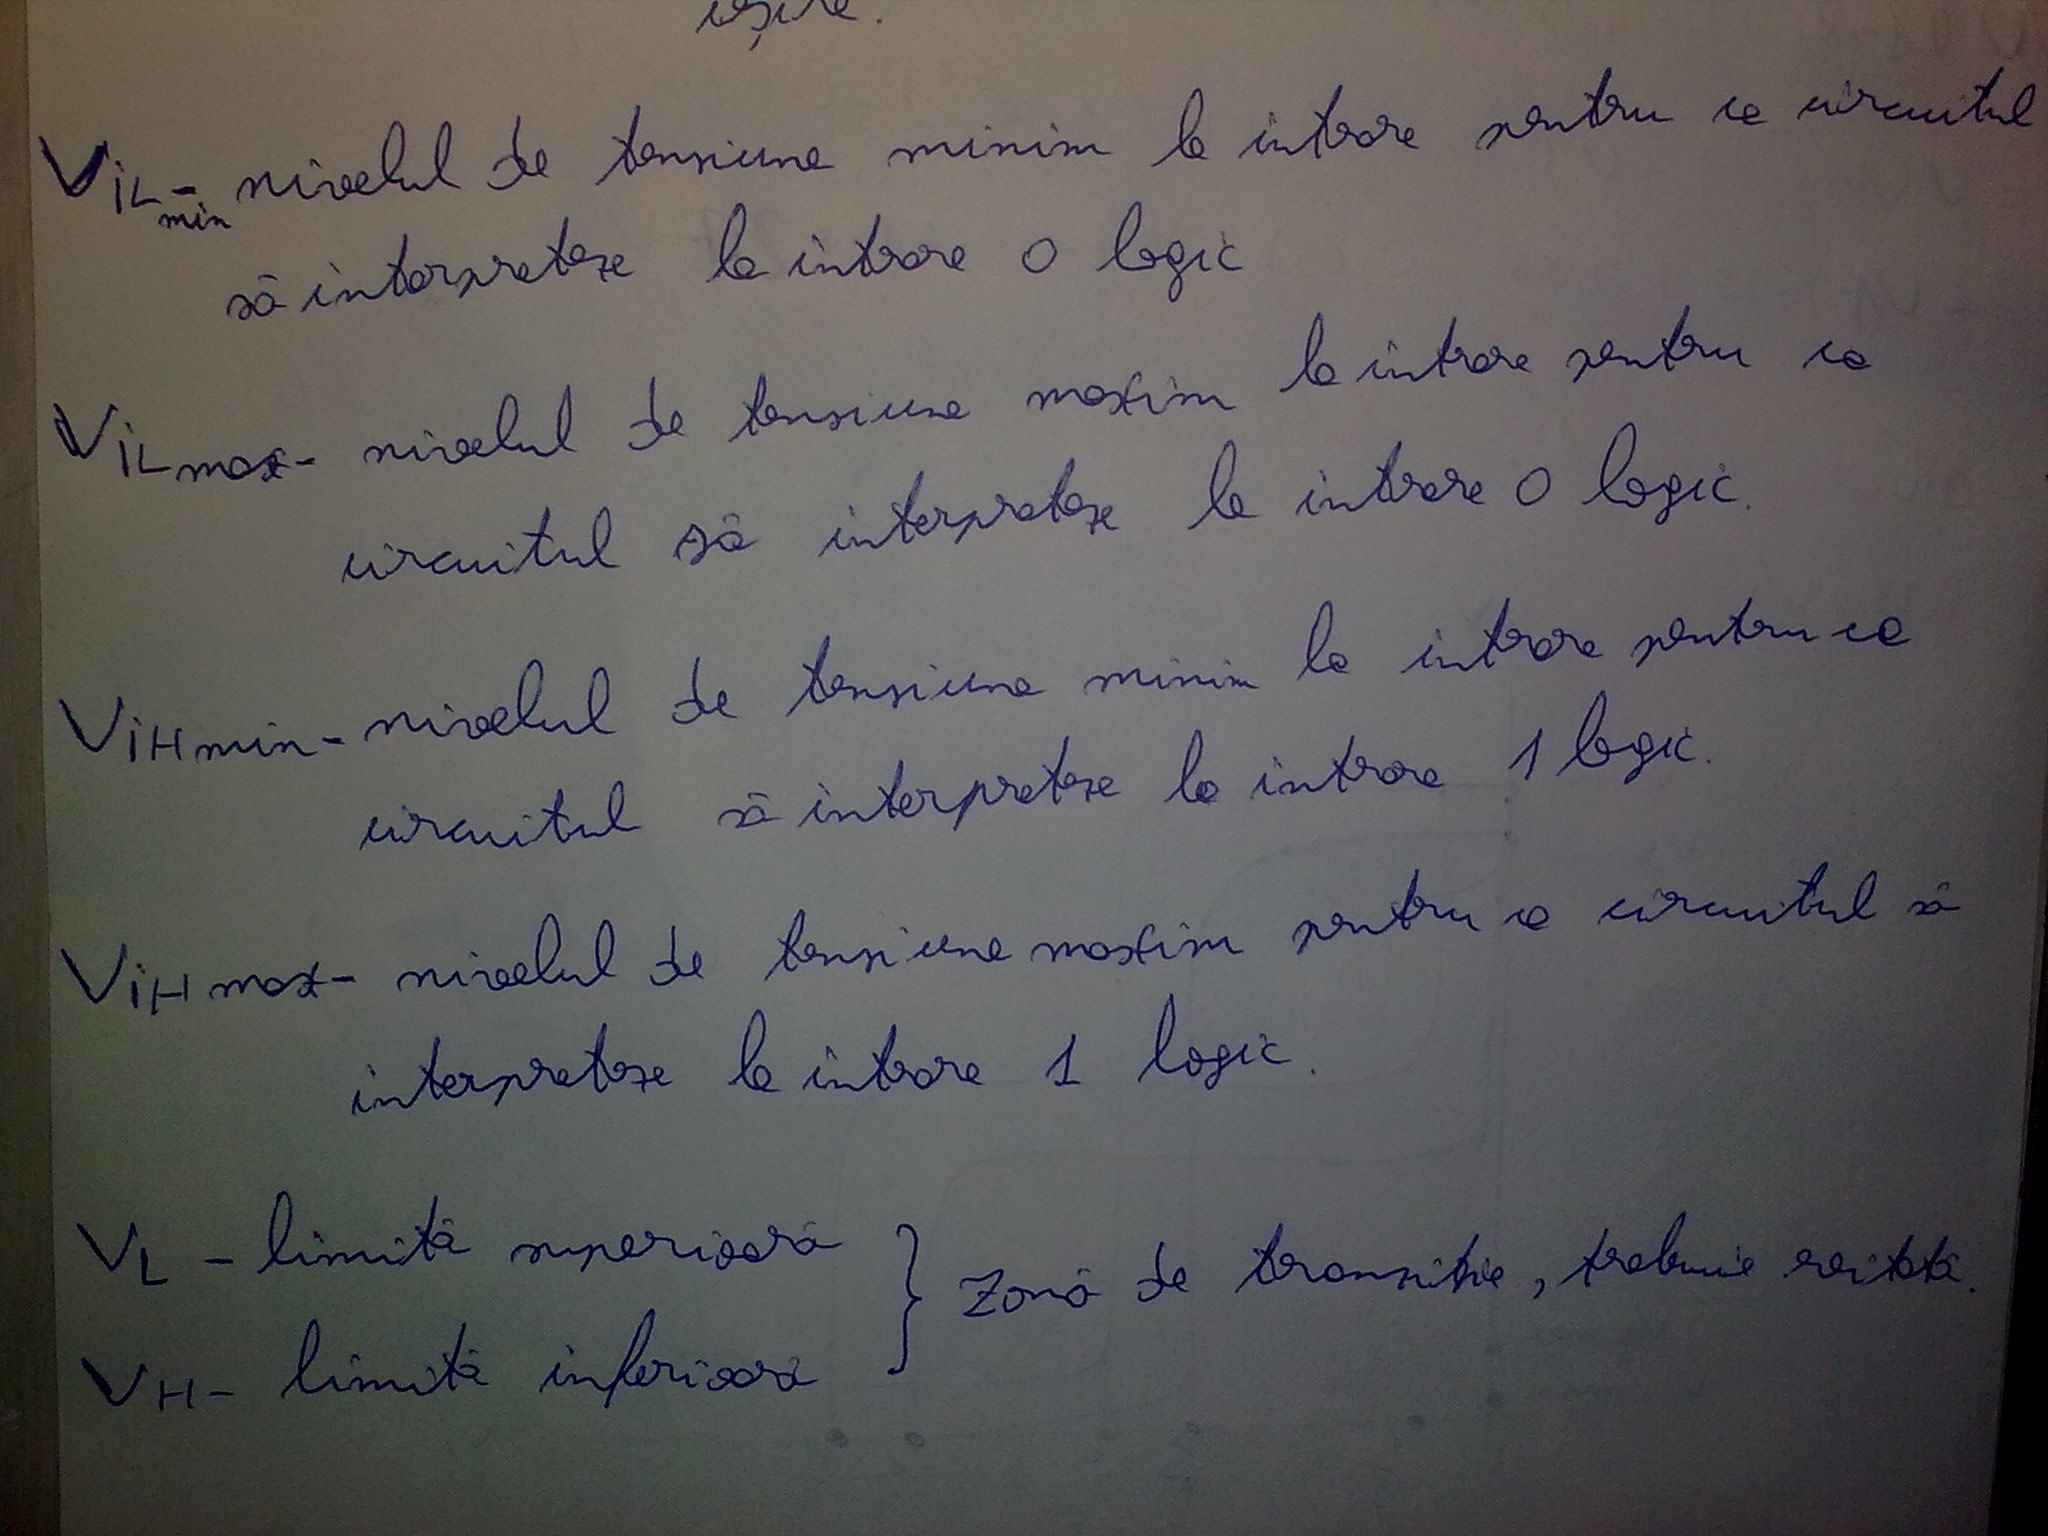 ieșire.
ViLmin - nivelul de tensiune minim la intrare pentru ca circuitul
să interpreteze la intrare 0 logic
ViLmax - nivelul de tensiune maxim la intrare pentru ca
circuitul să interpreteze la intrare 0 logic.
ViHmin - nivelul de tensiune minim la intrare pentru ca
circuitul să interpreteze la intrare 1 logic.
ViHmax - nivelul de tensiune maxim pentru ca circuitul să
interpreteze la intrare 1 logic.
VL - limită superioară
} Zonă de transiție, trebuie evitată.
VH - limită inferioară